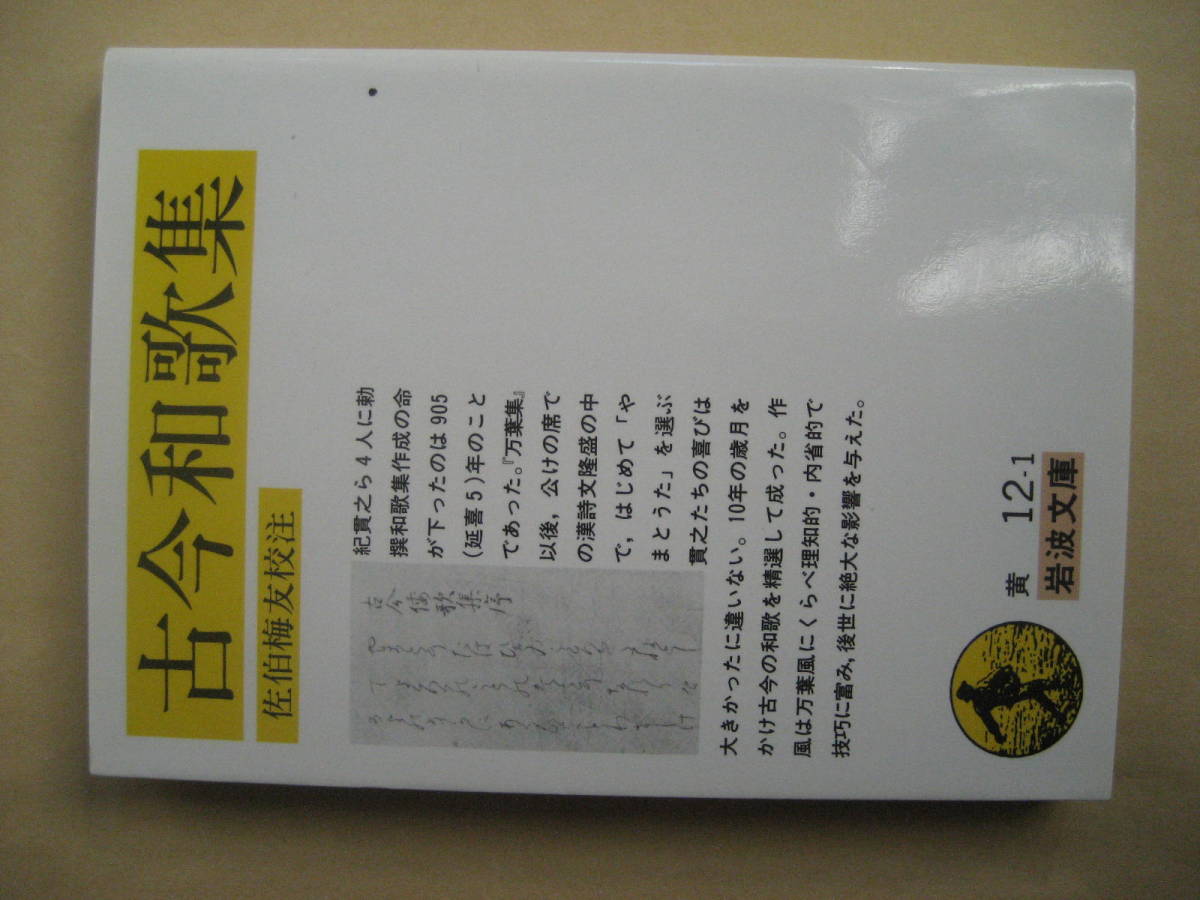 古今和歌集
佐伯梅友校注
紀貫之ら4人に勅
撰和歌集作成の命
が下ったのは905
(延喜5)年のこと
であった。『万葉集』
以後，公けの席で
の漢詩文隆盛の中
で，はじめて「や
まとうた」を選ぶ
貫之たちの喜びは
大きかったに違いない。10年の歳月を
かけ古今の和歌を精選して成った。作
風は万葉風にくらべ理知的・内省的で
技巧に富み，後世に絶大な影響を与えた。
古今倭歌集序
黄 12-1
岩波文庫